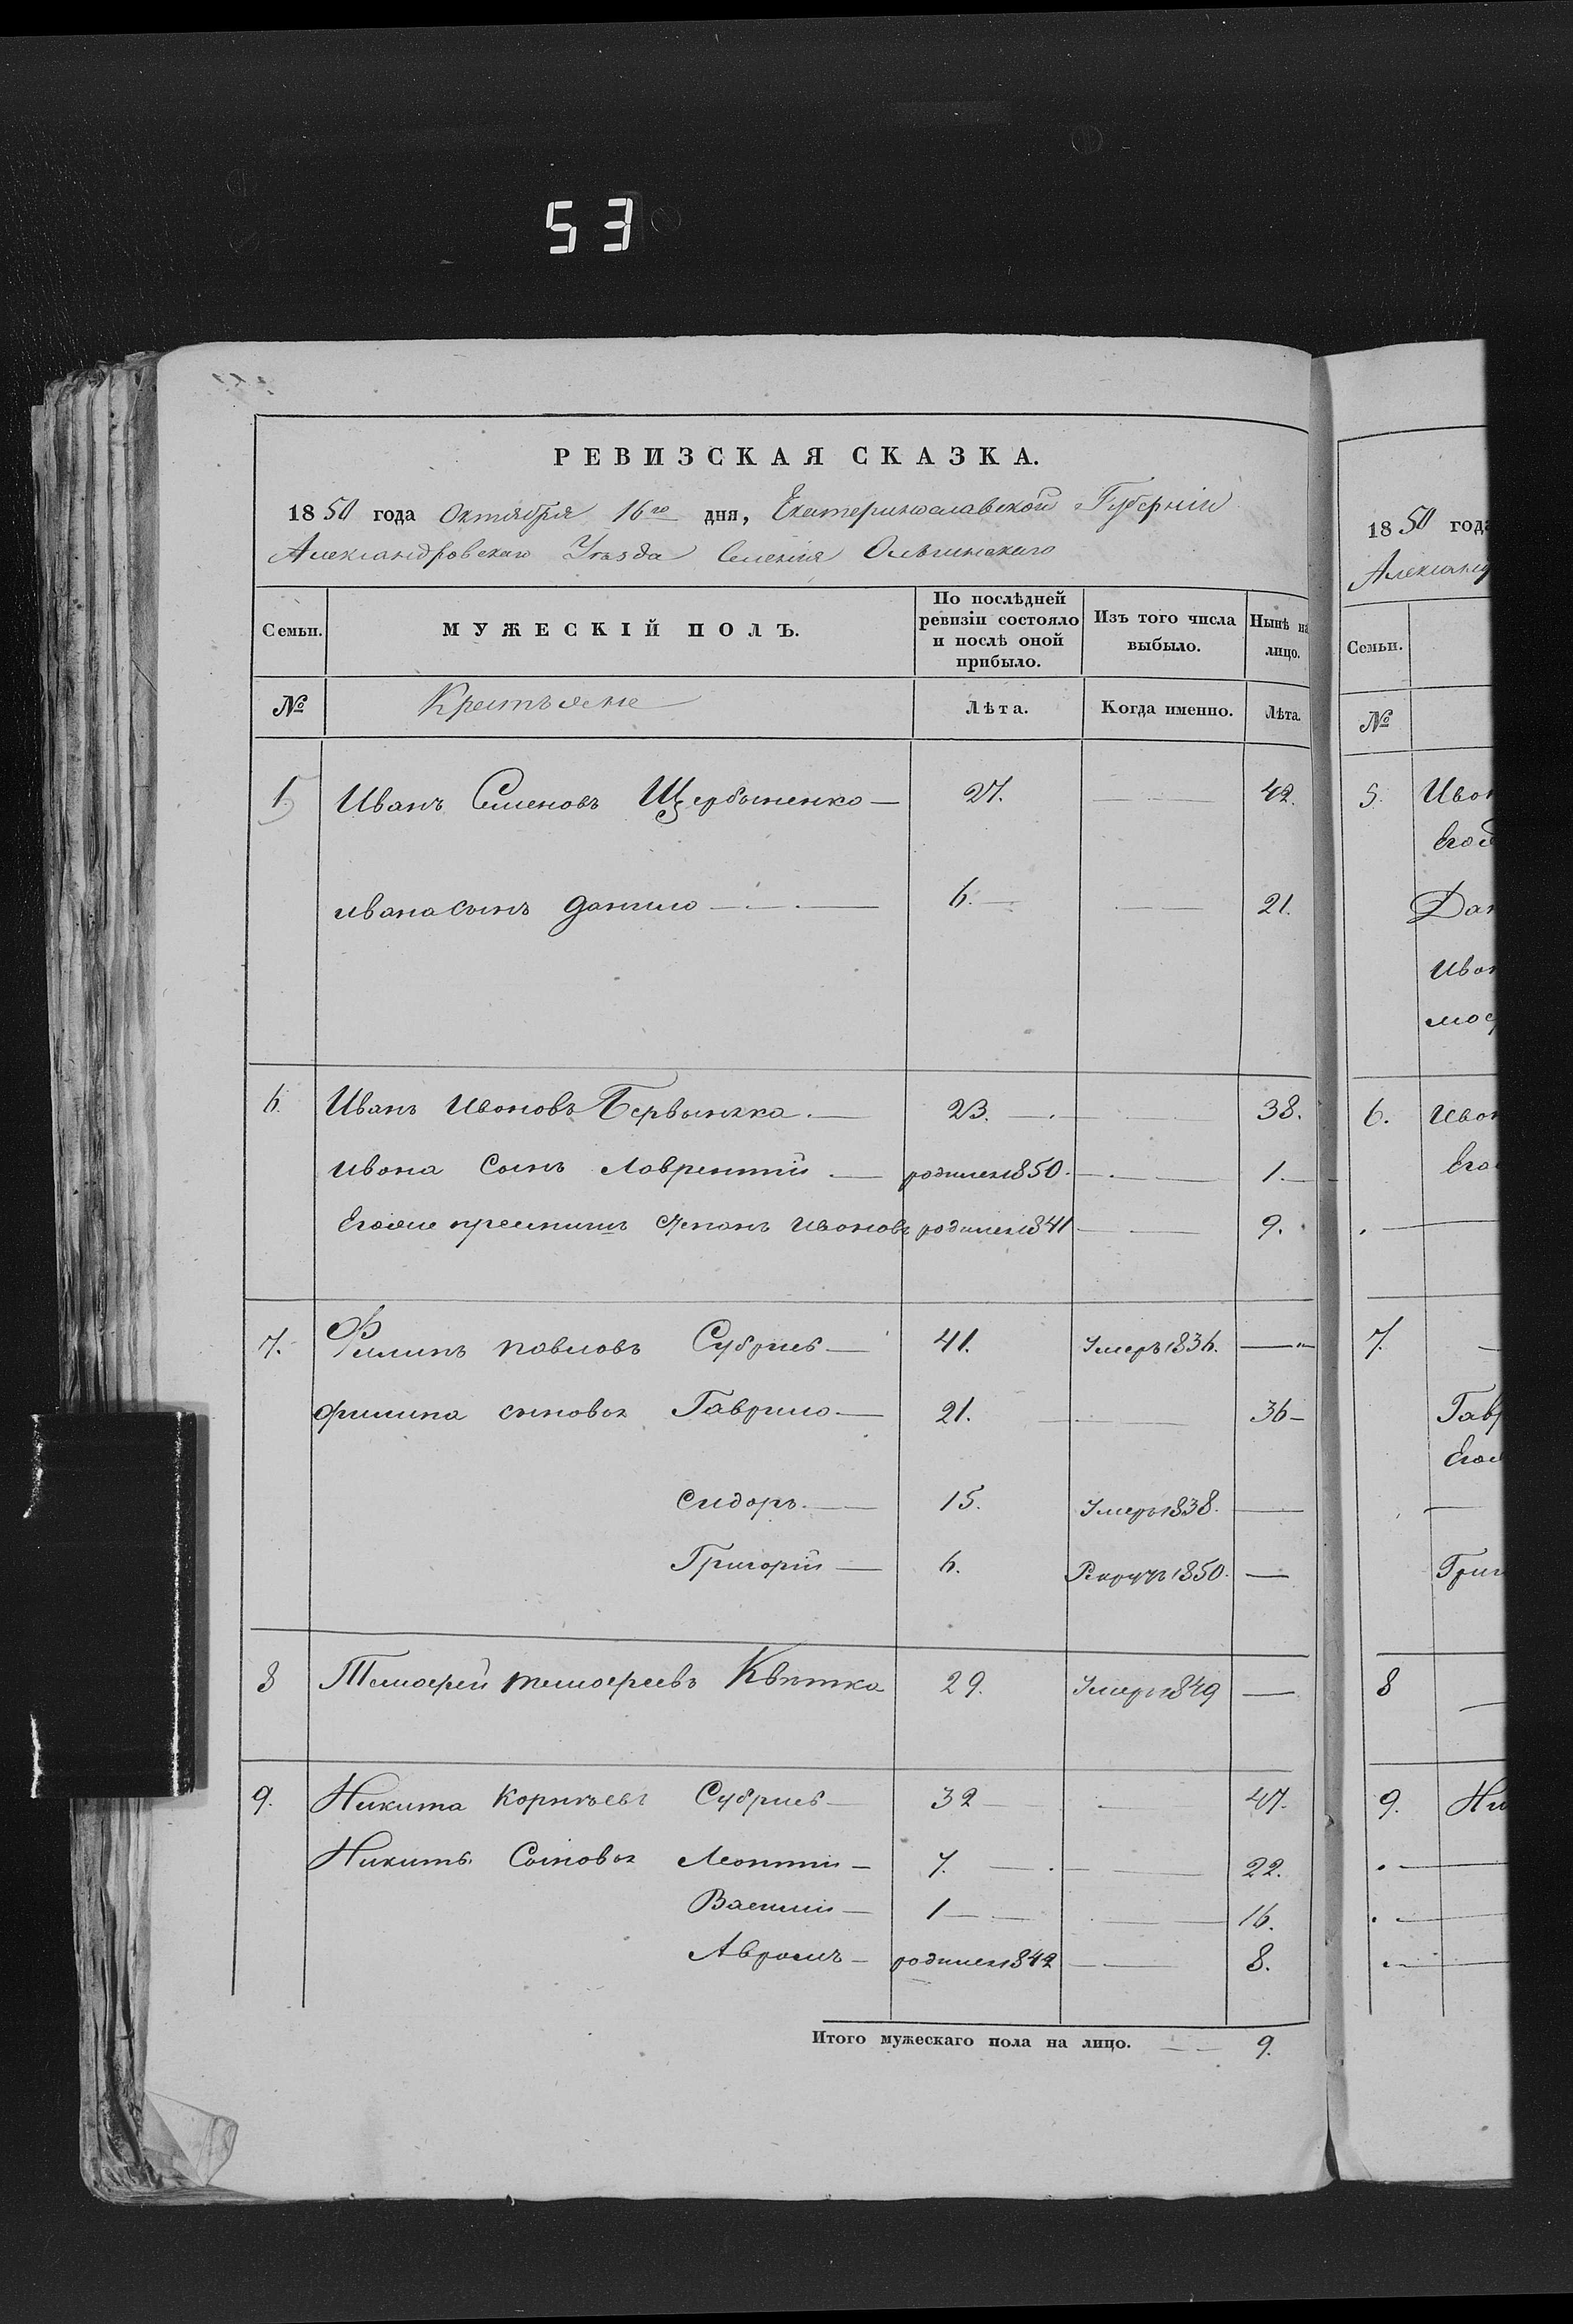 53
РЕВИЗСКАЯ СКАЗКА.
1850 года Октября 16го дня, Екатеринославской Губерніи
Александровскаго Уѣзда Селенія Ольгинскаго
Семьи.
МУЖЕСКІЙ ПОЛЪ.
По послѣдней ревизіи состояло и послѣ оной прибыло.
Изъ того числа выбыло.
Нынѣ на лицо.
№ Крестьяне Лѣта. Когда именно. Лѣта.
5 Иванъ Семеновъ Щербыненко — 27. — 42.
Ивана сынъ Данило — 6. — 21.
6. Иванъ Ивановъ — 23. — 38.
Ивана Сынъ Лаврентій — родился 1850. — 1.
Егоже Степанъ Ивановъ родился 1841 — 9.
7. Филипъ Павловъ — 41. Умеръ 1836. —
Филипа сыновья Гаврило — 21. — 36 —
Сидоръ — 15. Умеръ 1838. —
Григорій — 6. Рекрутъ 1850. —
8 Тимофей тимофеевъ Квитка 29. Умеръ 1849 —
9. Никита Корнѣевъ — 32 — 47.
Никиты Сыновья Леонтій — 7. — 22.
Василій — 1 — 16.
Аврамъ — родился 1842 — 8.
Итого мужескаго пола на лицо. — 9.
1850 года
Александ
Семьи.
№
5. Иван
Его
Дан
Иван
6. Иван
Его
7. —
Гав
Его
—
Григ
8 —
9. Ни